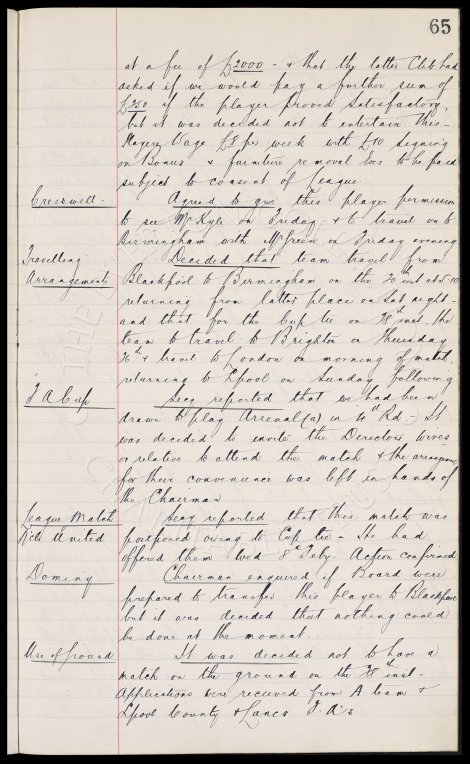 65
at a fee of £2000 - & that the latter Club had
asked if we would pay a further sum of
£250 if the player proved satisfactory,
but it was decided not to entertain this -
Players Wage £8 per week with £10 signing
on Bonus & furniture removal to be paid
subject to consent of League
Cresswell - Agreed to give this player permission
to see Mr Kyle on Friday & to travel on to
Birmingham with McGreen on Friday evening
Travelling Decided that team travel from
Arrangements Blackpool to Birmingham on the 20th inst at 5-10
returning from latter place on Sat night -
and that for the Cup tie on 28th inst. the
team to travel to Brighton on Thursday
26th & travel to London on morning of match
returning to Lpool on Sunday following
F A Cup Secy reported that we had been
drawn to play Arsenal (a) in 4th Rd. - It
was decided to invite the Directors wives
or relative to attend the match & the arrangements
for their convenience was left in hands of
the Chairman
League Match Secy reported that this match was
N'cle United postponed owing to Cup tie - He had
offered them Wed 8th Feby. Action confirmed
Dominy Chairman enquired if Board were
prepared to transfer this player to Blackpool
but it was decided that nothing could
be done at the moment.
Use of Ground It was decided not to have a
match on the ground on the 28th inst -
Applications were received from A team &
Lpool County & Lancs F.A's